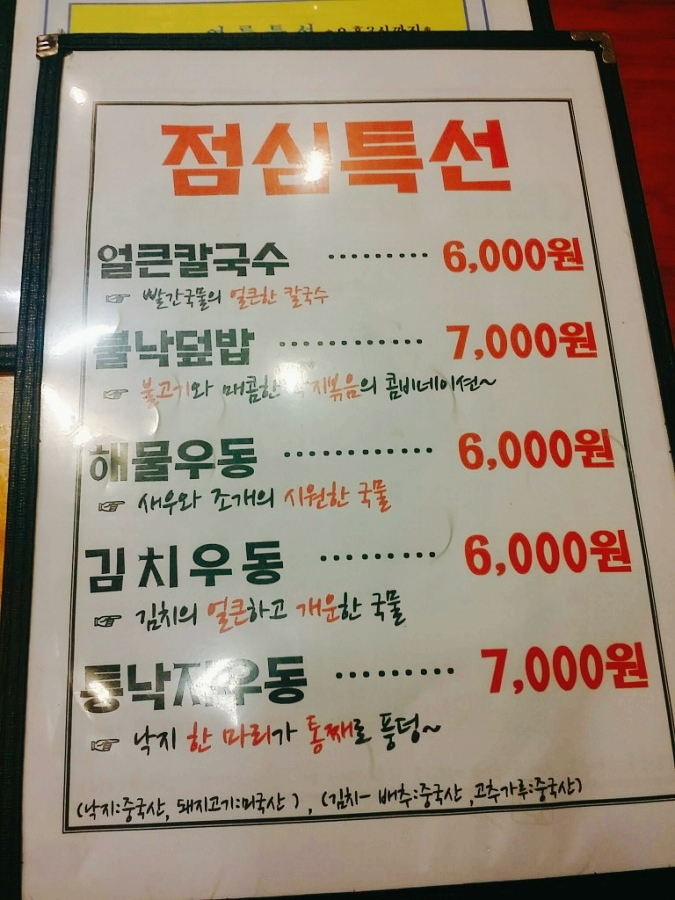 점심특선
얼큰칼국수 ········· 6,000원
☞ 빨간국물의 얼큰한 칼국수
불낙덮밥 ············ 7,000원
☞ 불고기와 매콤한 낙지볶음의 콤비네이션~
해물우동 ············ 6,000원
☞ 새우와 조개의 시원한 국물
김치우동 ········· 6,000원
☞ 김치의 얼큰하고 개운한 국물
통낙지우동 ········· 7,000원
☞ 낙지 한 마리가 통째로 풍덩~
(낙지:중국산, 돼지고기:미국산), (김치- 배추:중국산, 고추가루:중국산)